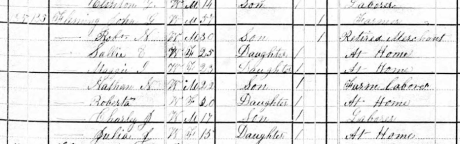 Clinton L. W M 14 Son Laborer
John G W M 57 1 Farmer
Robt. W M 30 Son 1 Retired Merchant
Sallie W F 25 Daughter 1 At Home
W F 23 Daughter 1 At Home
Nathan W M 22 Son 1 Farm Laborer
Roberta W F 20 Daughter 1 At Home
Charly J W M 17 Son 1 Laborer
Julia J W F 15 Daughter 1 At Home